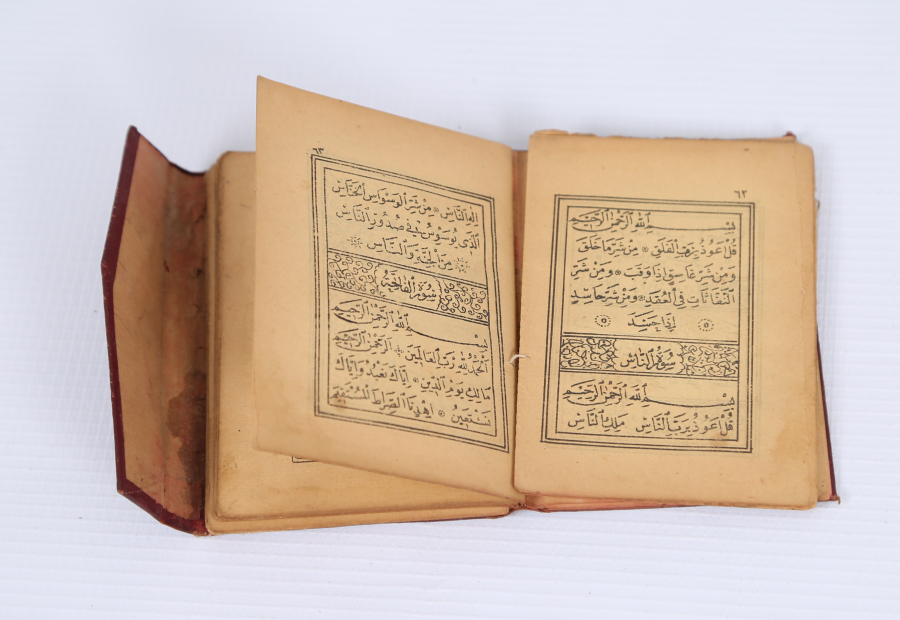 ٦٢
بِسْمِ اللهِ الرَّحْمٰنِ الرَّحِيمِ
قُلْ اَعُوذُ بِرَبِّ الْفَلَقِ ۞ مِنْ شَرِّ مَا خَلَقَ
وَمِنْ شَرِّ غَاسِقٍ اِذَا وَقَبَ ۞ وَمِنْ شَرِّ
النَّفَّاثَاتِ فِي الْعُقَدِ ۞ وَمِنْ شَرِّ حَاسِدٍ
اِذَا حَسَدَ
سُورَةُ النَّاسِ
بِسْمِ اللهِ الرَّحْمٰنِ الرَّحِيمِ
قُلْ اَعُوذُ بِرَبِّ النَّاسِ مَلِكِ النَّاسِ
٦٣
اِلٰهِ النَّاسِ ۞ مِنْ شَرِّ الْوَسْوَاسِ الْخَنَّاسِ
اَلَّذِي يُوَسْوِسُ فِي صُدُورِ النَّاسِ
مِنَ الْجِنَّةِ وَالنَّاسِ
سُورَةُ الْفَاتِحَةِ
بِسْمِ اللهِ الرَّحْمٰنِ الرَّحِيمِ
اَلْحَمْدُ لِلّٰهِ رَبِّ الْعَالَمِينَ ۞ اَلرَّحْمٰنِ الرَّحِيمِ
مَالِكِ يَوْمِ الدِّينِ ۞ اِيَّاكَ نَعْبُدُ وَاِيَّاكَ
نَسْتَعِينُ ۞ اِهْدِنَا الصِّرَاطَ الْمُسْتَقِيمَ